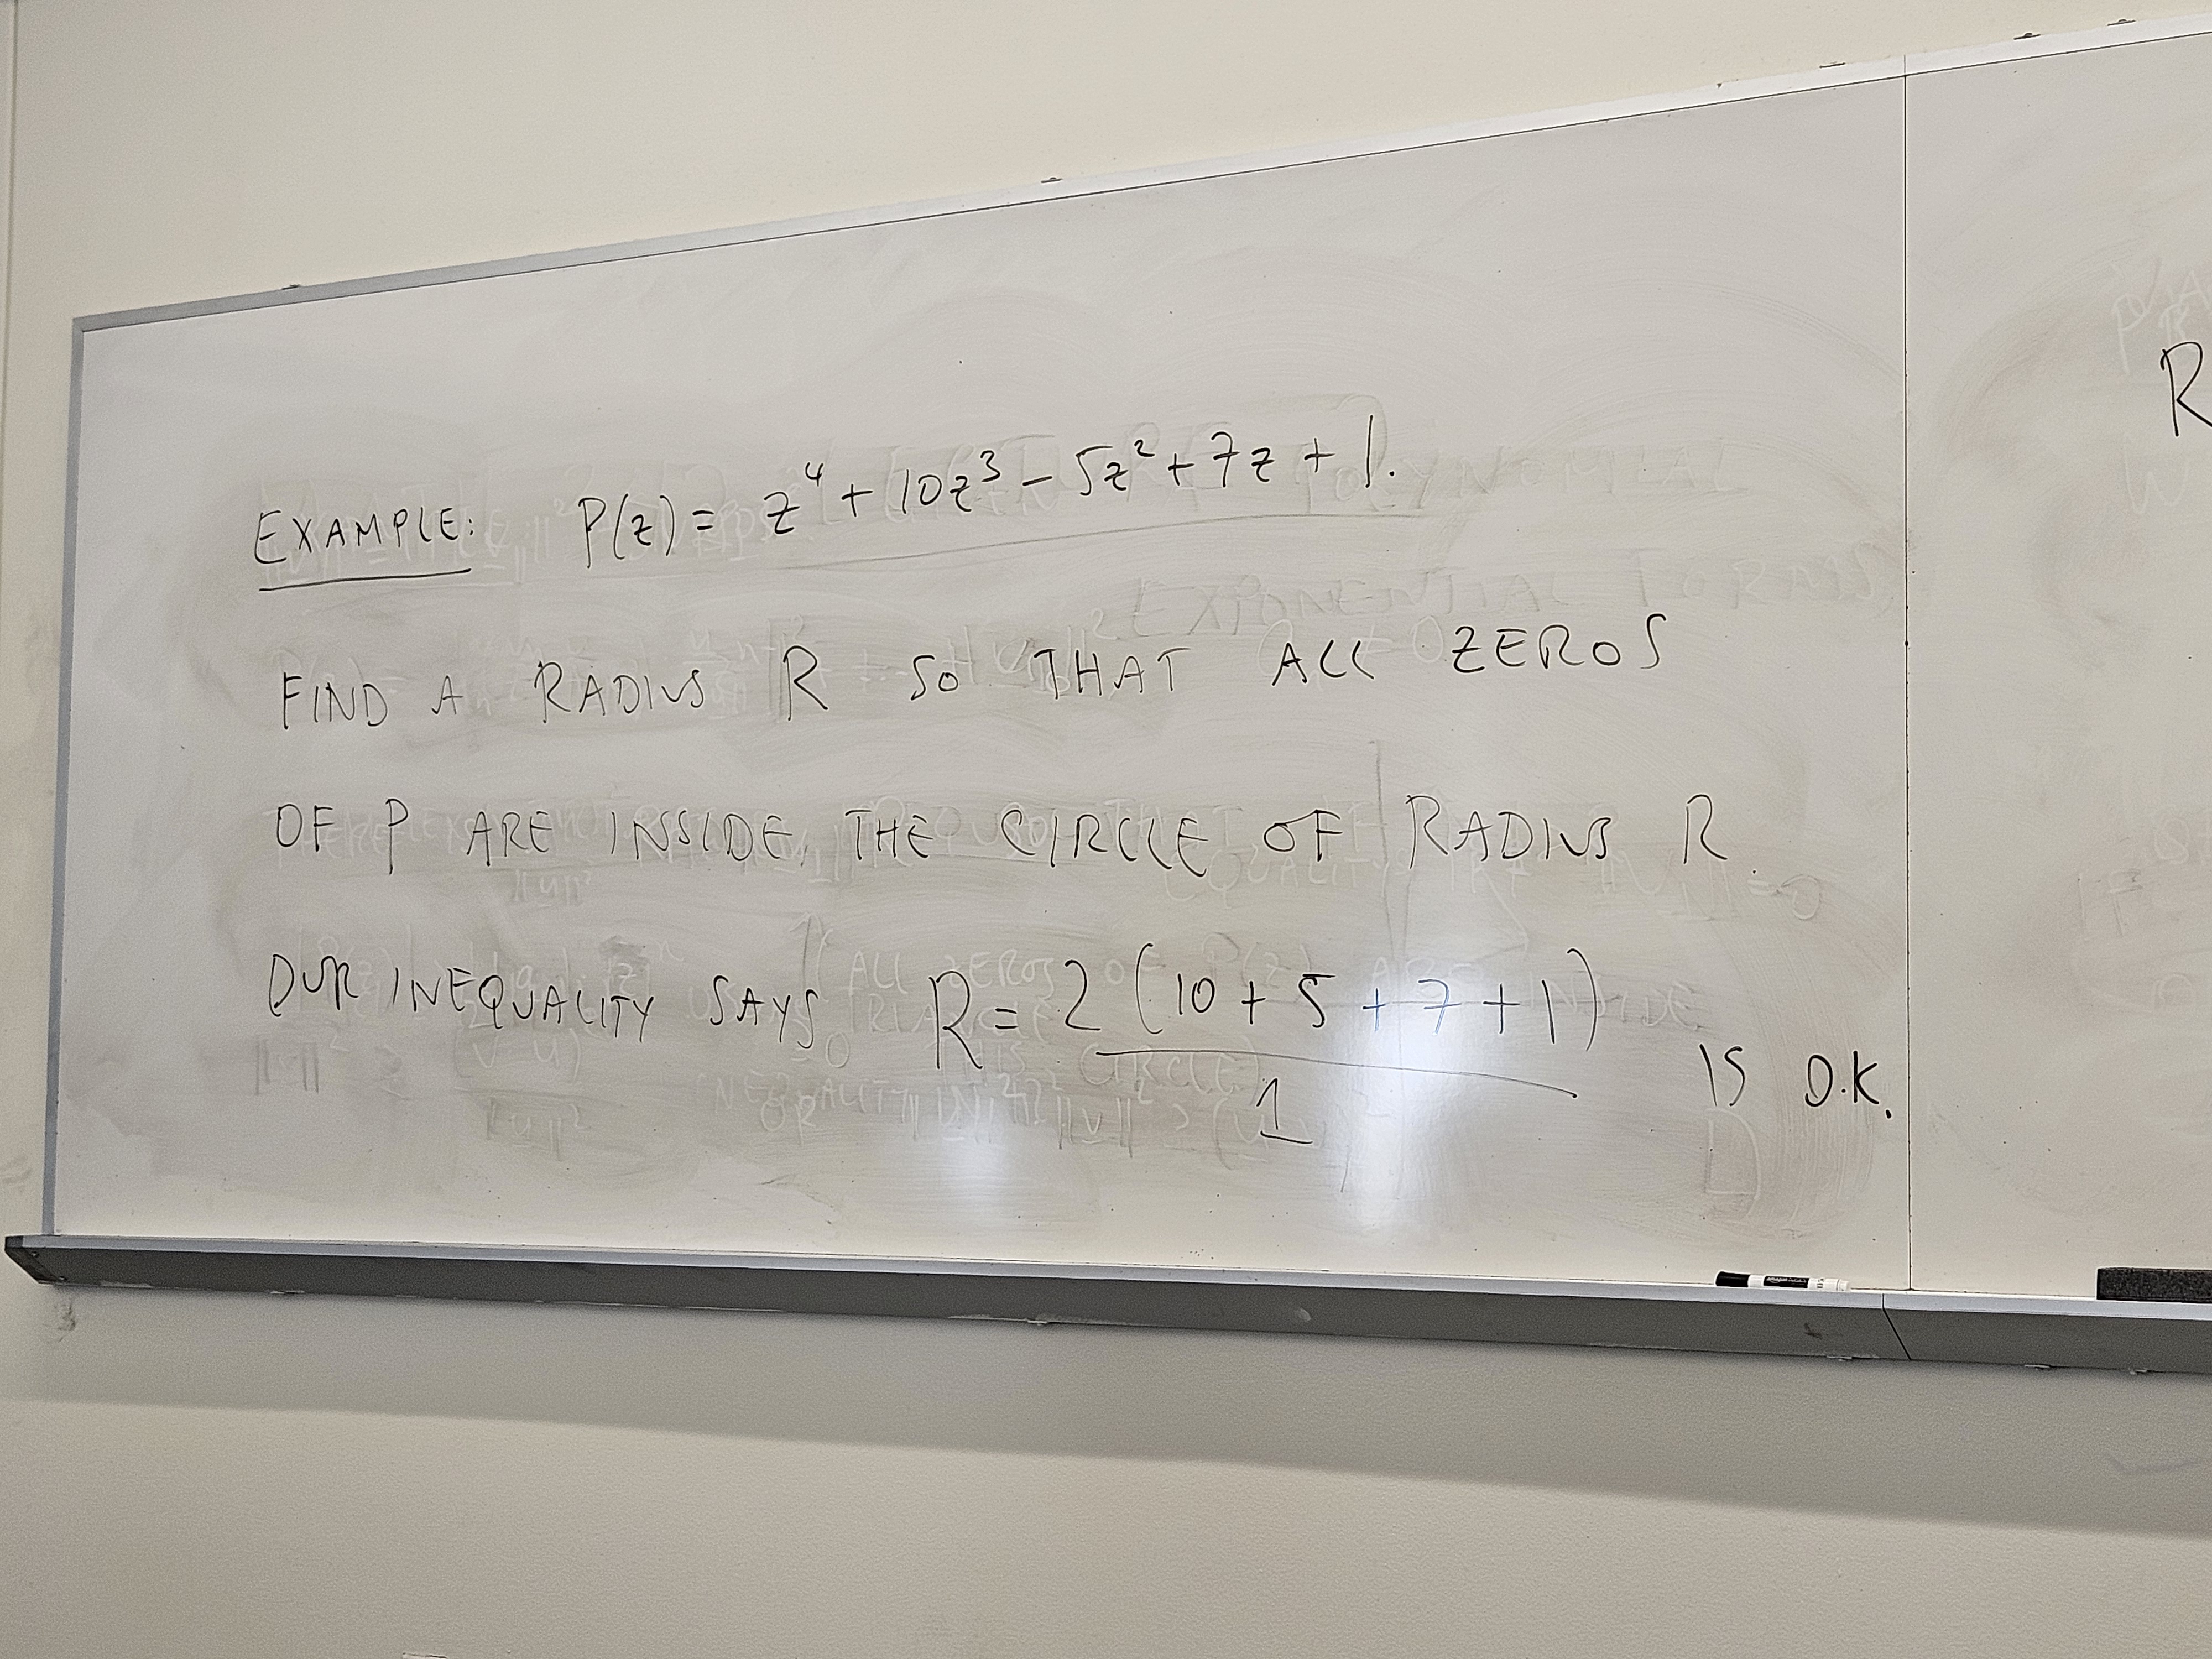 EXAMPLE: P(z) = z⁴ + 10z³ - 5z² + 7z + 1.
FIND A RADIUS R SO THAT ALL ZEROS
OF P ARE INSIDE THE CIRCLE OF RADIUS R.
OUR INEQUALITY SAYS R = 2 (10 + 5 + 7 + 1) / 1 IS O.K.
R